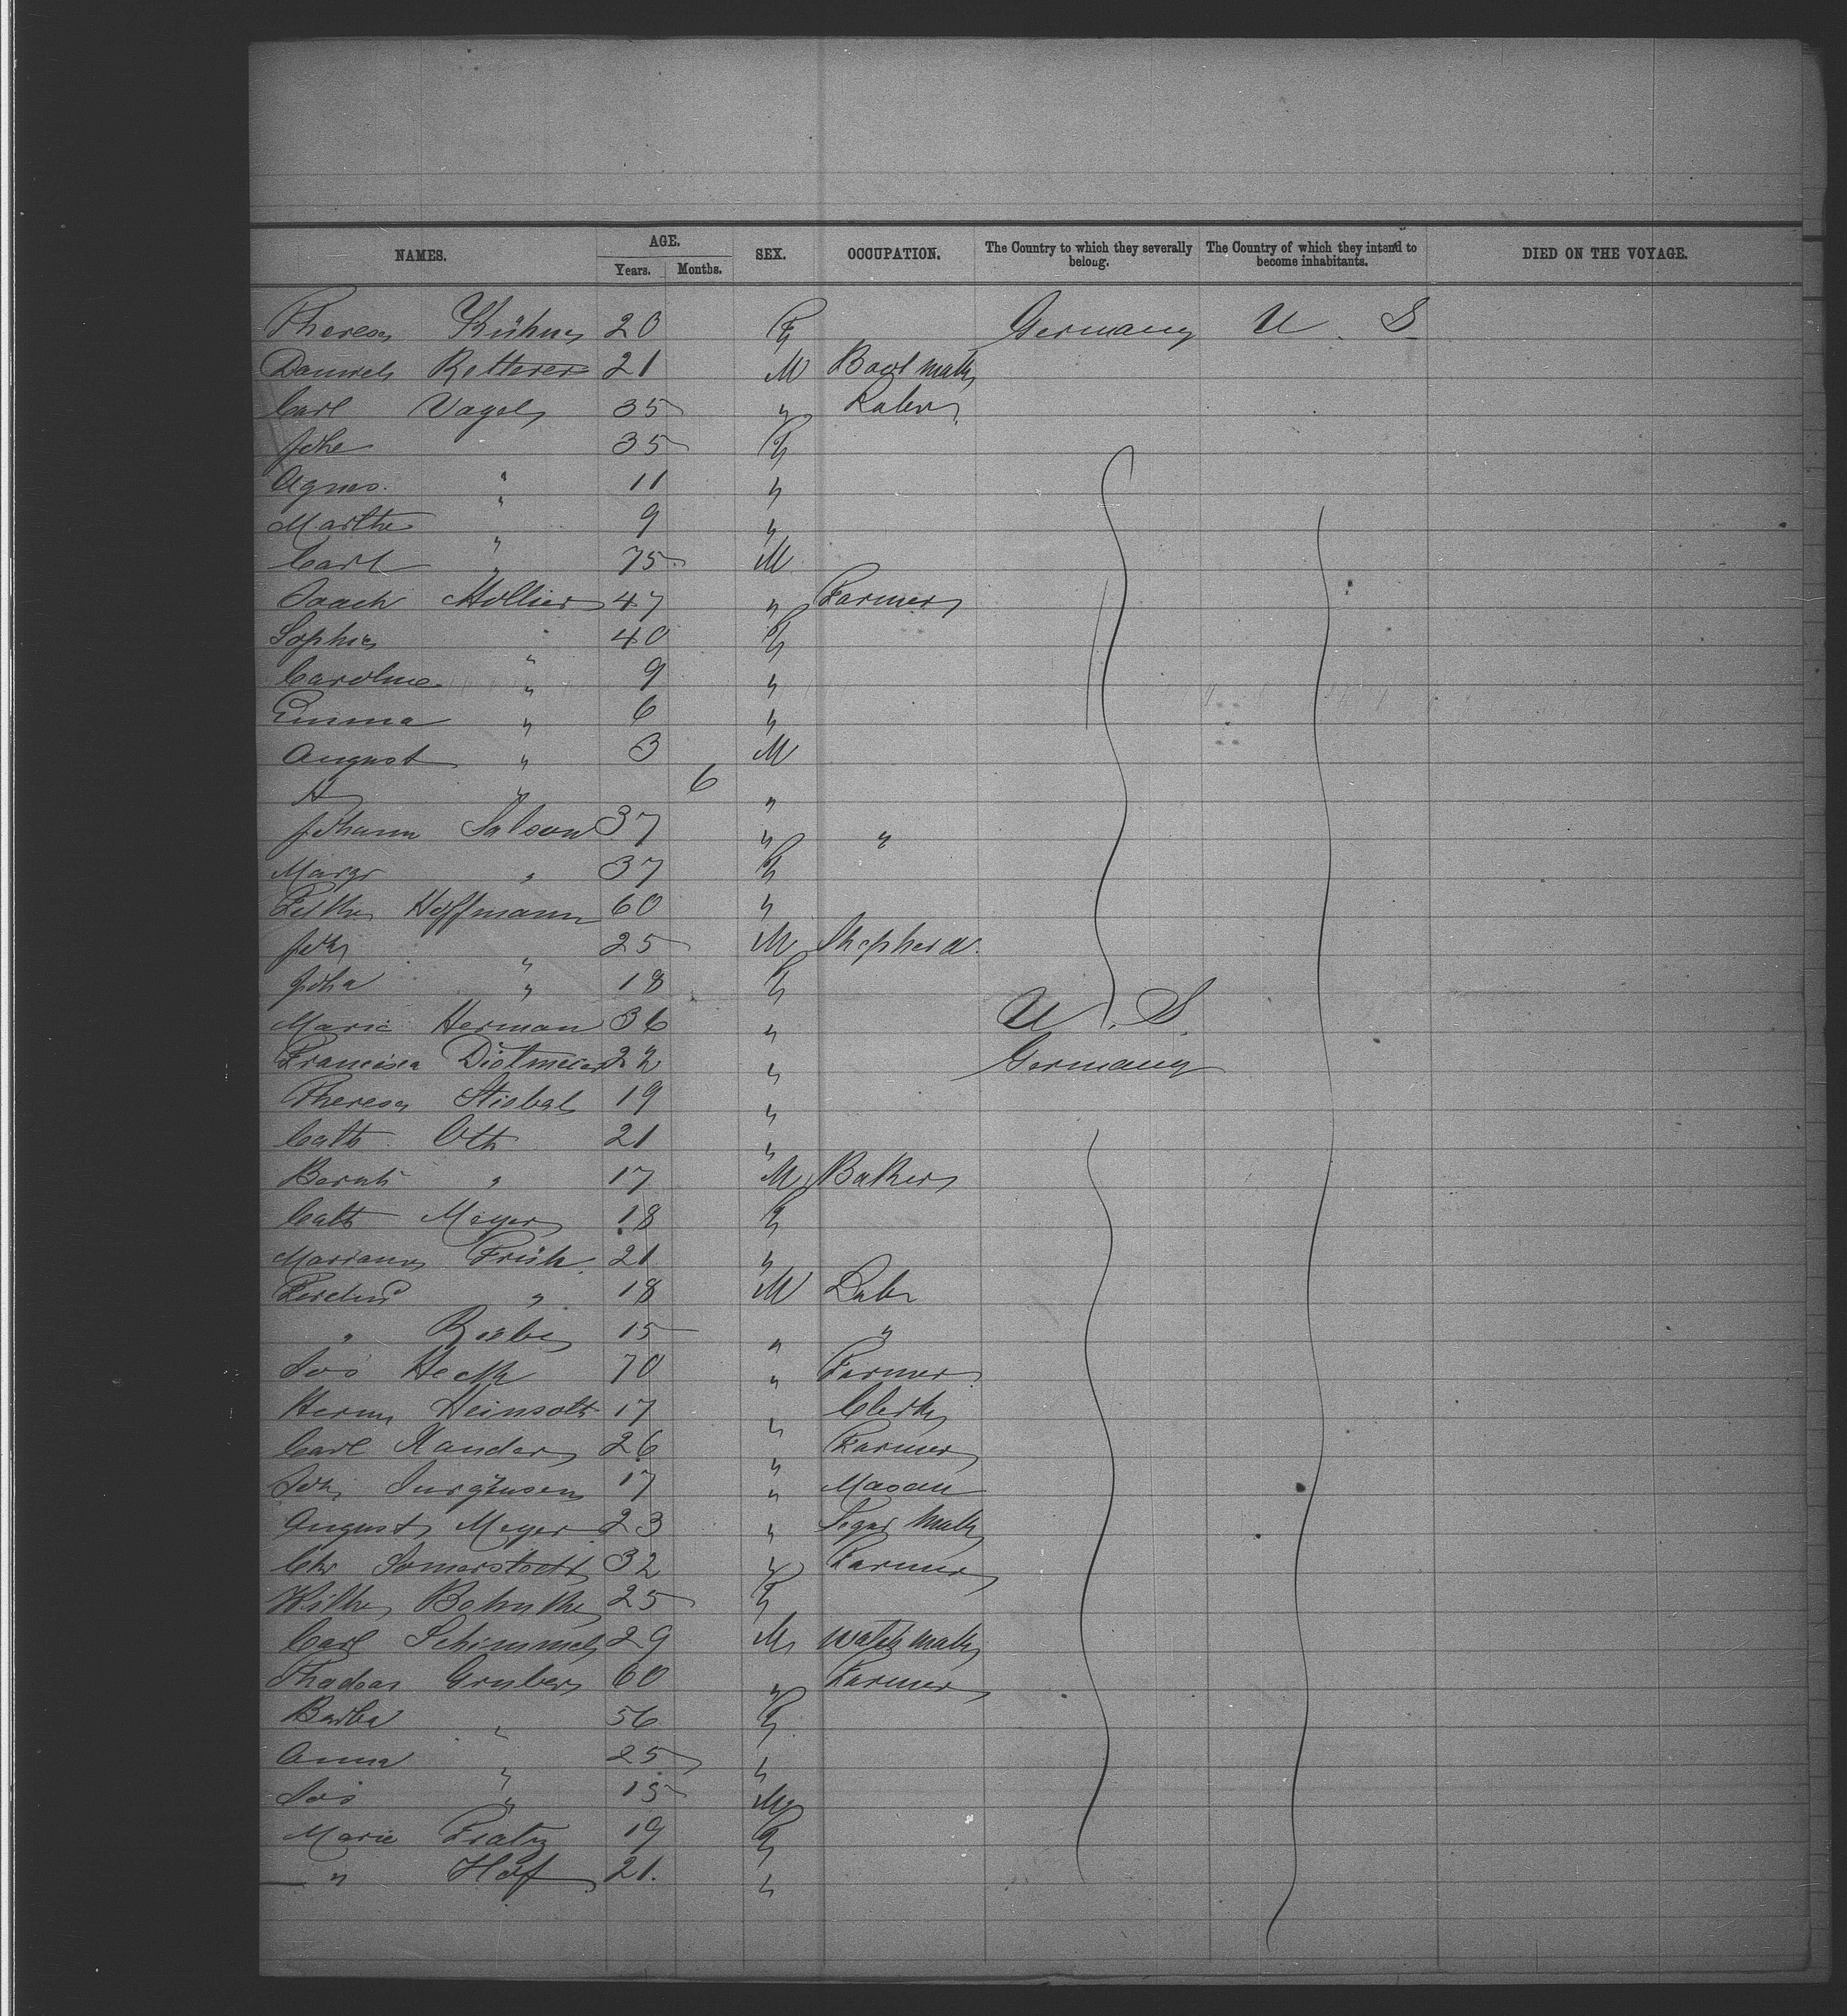 NAMES. AGE. SEX. OCCUPATION. The Country to which they severally belong. The Country of which they intend to become inhabitants. DIED ON THE VOYAGE.
Years. Months.
Theresa Kühn 20 F Germany U. S
Retterer 21 M Boot mak
Carl Vogel 35 " Labr
Johe 35 F
Agnes " 11 "
Marthe " 9 "
Carl " 75 M
47 " Farmer
Sophia " 40 F
Caroline " 9 "
Emma " 6 "
August " 3 M
H " 6 "
Johann 37 " "
Margr " 37 F
Hoffmann 60 "
Joh " 25 M Shepherd.
Joha " 18 F
Marie Herman 36 " U. S.
Francisca 22 " Germany
Theresa 19 "
Cath Oth 21 "
Barnh " 17 M Baker
Cath Meyer 18 F
Mariann Früh 21 "
Ferdnd " 18 M Labr
" 15 " "
Jos Heck 70 " Farmer
Herm Heinsoth 17 " Clerk
Carl Kander 26 " Farmer
Joh Jurgensen 17 " Mason
August Meyer 23 " Segar Mak
Chr 32 " Farmer
Wilhe 25 F
Carl Schimmel 29 M Watch mak
Gruber 60 " Farmer
Barba " 56 F
Anna " 25 "
Jos " 15 M
Marie Fratz 19 F
" Hof 21. "